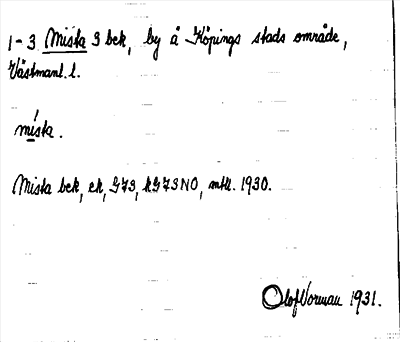 1-3 Mista 3 bek, by å Köpings stads område,
Västmanl. l.
mista.
Mista bek, ek, G73, kG73NO, mtl. 1930.
Olof Vorman 1931.